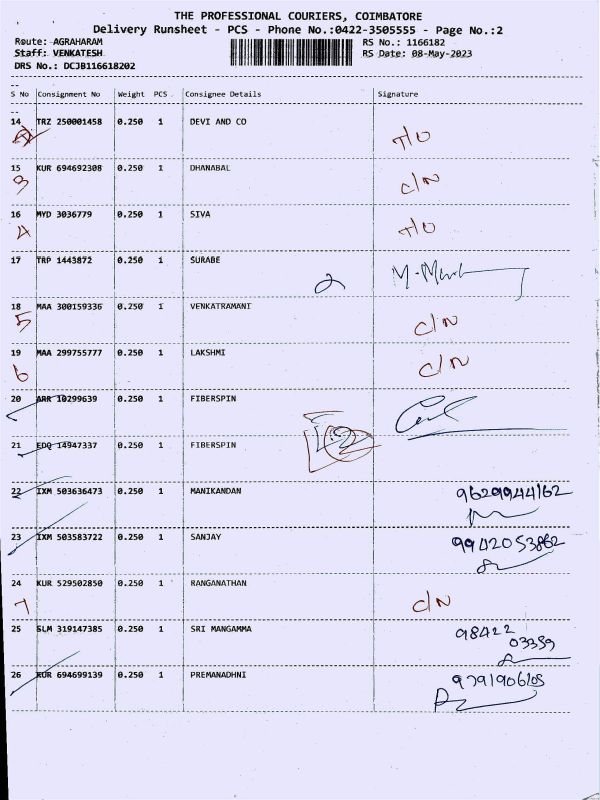 THE PROFESSIONAL COURIERS, COIMBATORE
Delivery Runsheet - PCS - Phone No.:0422-3505555 - Page No.:2
Route: AGRAHARAM RS No.: 1166182
Staff: VENKATESH RS Date: 08-May-2023
DRS No.: DCJB116618202
S No Consignment No Weight PCS Consignee Details Signature
14 TRZ 250001458 0.250 1 DEVI AND CO
15 KUR 694692308 0.250 1 DHANABAL C/N
3
16 MYD 3036779 0.250 1 SIVA
4
17 TRP 1443872 0.250 1 SURABE
2
18 MAA 300159336 0.250 1 VENKATRAMANI C/N
5
19 MAA 299755777 0.250 1 LAKSHMI C/N
6
20 ARR 10299639 0.250 1 FIBERSPIN
21 EDQ 14947337 0.250 1 FIBERSPIN
22 IXM 503636473 0.250 1 MANIKANDAN 9629944162
23 IXM 503583722 0.250 1 SANJAY 9942053862
24 KUR 529502850 0.250 1 RANGANATHAN C/N
7
25 SLM 319147385 0.250 1 SRI MANGAMMA 98422
03359
26 KUR 694699139 0.250 1 PREMANADHNI